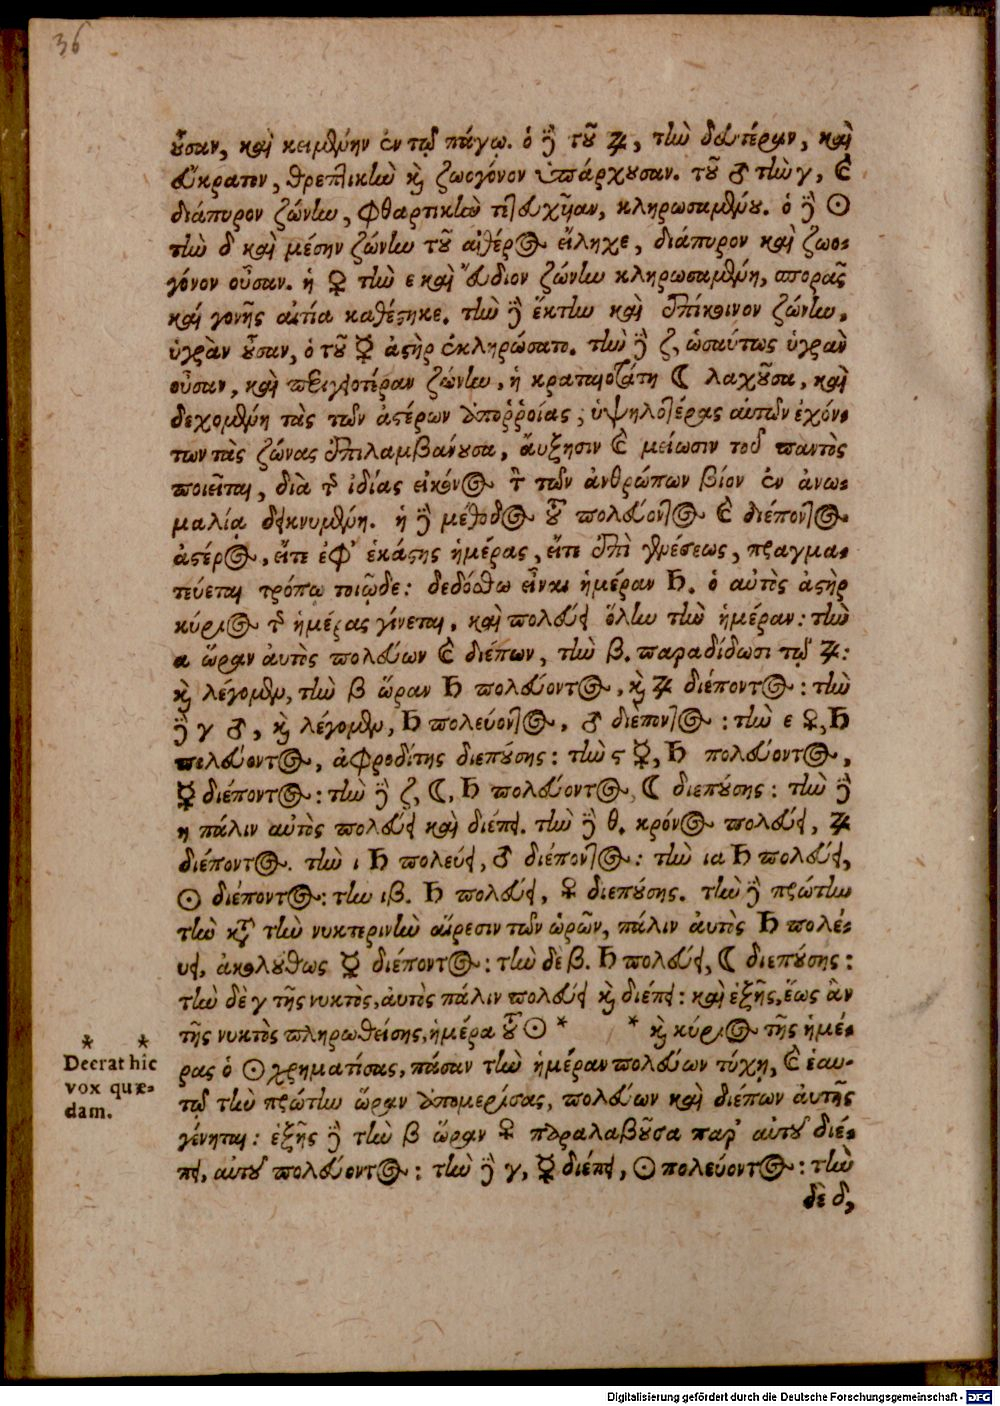 36
οὖσαν, καὶ κειμένην ἐν τῷ πάγῳ. ὁ δὲ τοῦ ♃, τὴν δευτέραν, καὶ
εὔκρατον, θρεπτικὴν καὶ ζωογόνον ὑπάρχουσαν. τοῦ ♂ τὴν γ, καὶ
διάπυρον ζώνην, φθαρτικὴν κληρωσαμένου. ὁ δὲ ☉
τὴν δ καὶ μέσην ζώνην τοῦ αἰθέρος εἴληχε, διάπυρον καὶ ζωο-
γόνον οὖσαν. ἡ ♀ τὴν ε καὶ εὔδιον ζώνην κληρωσαμένη, σπορᾶς
καὶ γονῆς αἰτία καθέστηκε. τὴν δὲ ἕκτην καὶ ἐπίκοινον ζώνην,
ὑγρὰν οὖσαν, ὁ τοῦ ☿ ἀστὴρ ἐκληρώσατο. τὴν δὲ ζ, ὡσαύτως ὑγρὰν
οὖσαν, καὶ περιγειοτέραν ζώνην, ἡ κραταιοτάτη ☾ λαχοῦσα, καὶ
δεχομένη τὰς τῶν ἀστέρων ἀποῤῥοίας, ὑψηλοτέρας αὐτῶν ἐχόν-
των τὰς ζώνας ἐπιλαμβανουσα, αὔξησιν καὶ μείωσιν τοῦ παντὸς
ποιεῖται, διὰ τῆς ἰδίας εἰκόνος τὸν τῶν ἀνθρώπων βίον ἐν ἀνω-
μαλίᾳ δεικνυμένη. ἡ δὲ μέθοδος τοῦ πολεύοντος καὶ διέποντος
ἀστέρος, εἴτε ἐφ᾽ ἑκάστης ἡμέρας, εἴτε ἐπὶ γενέσεως, πραγμα-
τεύεται τρόπῳ τοιῷδε: δεδόσθω εἶναι ἡμέραν ♄. ὁ αὐτὸς ἀστὴρ
κύριος τῆς ἡμέρας γίνεται, καὶ πολεύει ὅλην τὴν ἡμέραν: τὴν
α ὥραν αὐτὸς πολεύων καὶ διέπων, τὴν β. παραδίδωσι τῷ ♃:
καὶ λέγομεν, τὴν β ὥραν ♄ πολεύοντος, καὶ ♃ διέποντος: τὴν
δὲ γ ♂, καὶ λέγομεν, ♄ πολεύοντος, ♂ διέποντος: τὴν ε ♀, ♄
πολεύοντος, ἀφροδίτης διεπούσης: τὴν ϛ ☿, ♄ πολεύοντος,
☿ διέποντος: τὴν δὲ ζ, ☾, ♄ πολεύοντος, ☾ διεπούσης: τὴν δὲ
η πάλιν αὐτὸς πολεύει καὶ διέπει. τὴν δὲ θ. κρόνος πολεύει, ♃
διέποντος. τὴν ι ♄ πολεύει, ♂ διέποντος: τὴν ια ♄ πολεύει,
☉ διέποντος: τὴν ιβ. ♄ πολεύει, ♀ διεπούσης. τὴν δὲ πρώτην
τὴν κατὰ τὴν νυκτερινὴν αἵρεσιν τῶν ὡρῶν, πάλιν αὐτὸς ♄ πολέ-
υει, ἀκολούθως ☿ διέποντος: τὴν δὲ β. ♄ πολεύει, ☾ διεπούσης:
τὴν δὲ γ τῆς νυκτὸς, αὐτὸς πάλιν πολεύει καὶ διέπει: καὶ ἑξῆς, ἕως ἂν
τῆς νυκτὸς πληρωθείσης, ἡμέρα τοῦ ☉ * * καὶ κύριος τῆς ἡμέ-
ρας ὁ ☉ χρηματίσας, πάσαν τὴν ἡμέραν πολεύων τύχῃ, καὶ ἑαυ-
τῷ τὴν πρώτην ὥραν ἀπομερίσας, πολεύων καὶ διέπων αὐτῆς
γένηται: ἑξῆς δὲ τὴν β ὥραν ♀ παραλαβοῦσα παρ᾽ αὐτοῦ διέ-
πει, αὐτοῦ πολεύοντος: τὴν δὲ γ, ☿ διέπει, ☉ πολεύοντος: τὴν
δὲ δ,
* *
Deerat hîc
vox quæ-
dam.
Digitalisierung gefördert durch die Deutsche Forschungsgemeinschaft - DFG